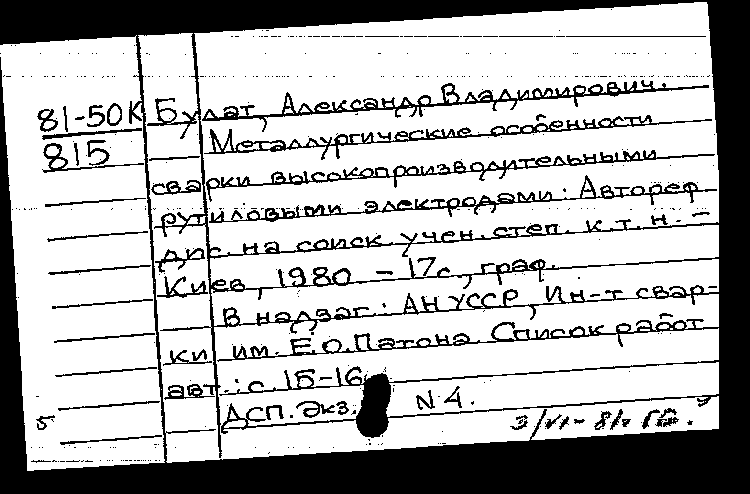 81-50К Булат, Александр Владимирович.
815 Металлургические особенности
сварки высокопроизводительными
рутиловыми электродами: Автореф
дис. на соиск. учен. степ. к.т.н. -
Киев, 1980 - 17с., граф.
В надзаг.: АН УССР, Ин-т свар-
ки им. Е.О.Патона. Список работ
авт.: с. 15-16
ДСП. Экз. N 4.
5 3/VI-81г.